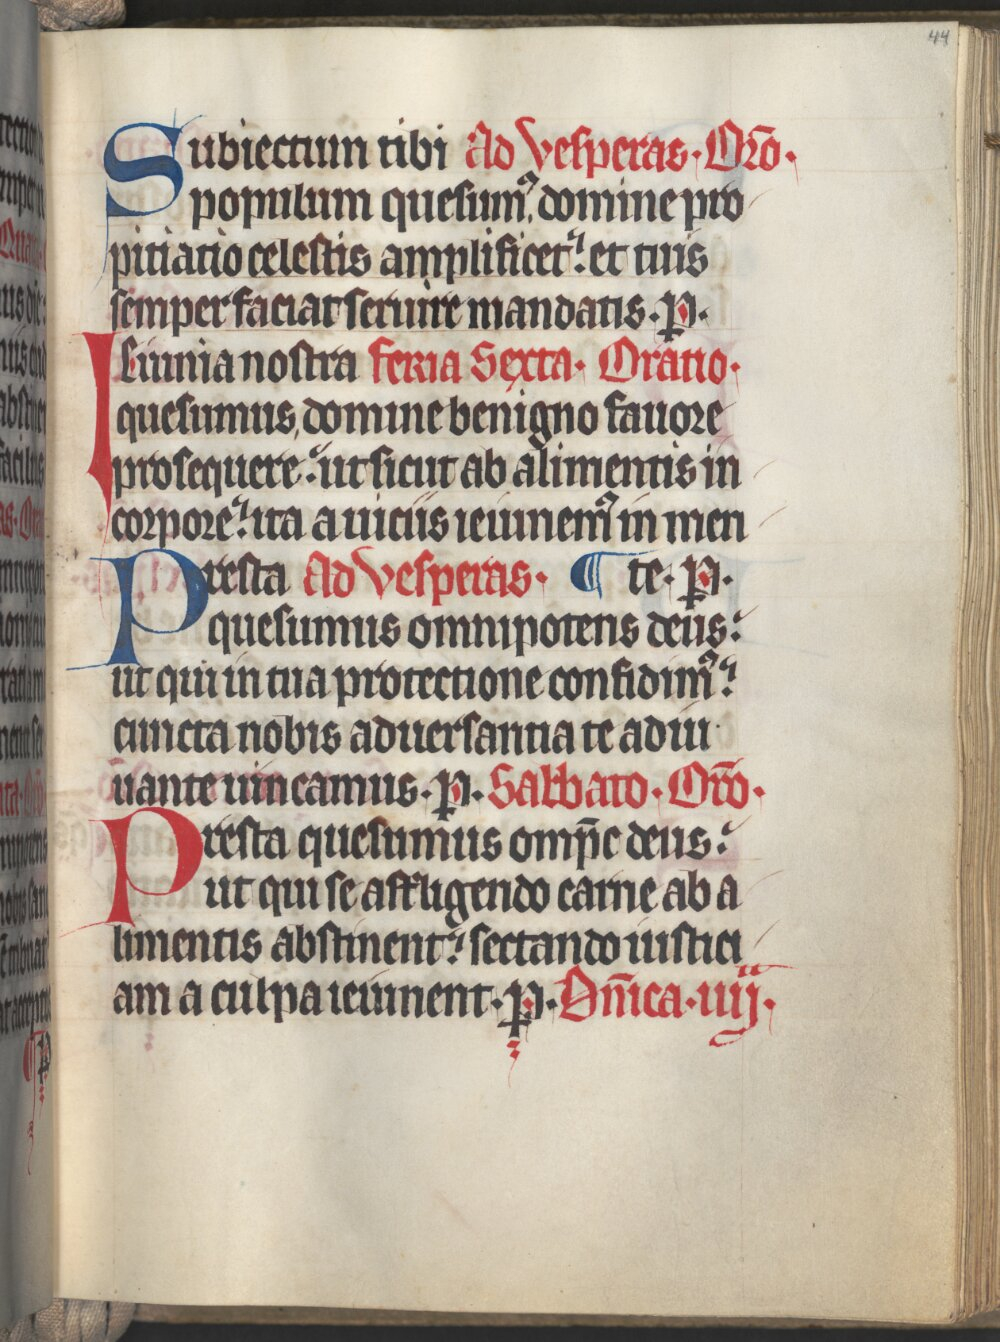 44
Subiectum tibi Ad vesperas · Oro ·
populum quesum⁹, domine pro
pitiatio celestis amplificet᷑ et tuis
semper faciat seruire mandatis · P ·
Ieiunia nostra feria Sexta · Oratio ·
quesumus, domine benigno fauore
prosequere: ut sicut ab alimentis in
corpore: ita a uiciis ieiunem⁹ in men
Presta Ad vesperas · ¶ te · P ·
quesumus omnipotens deus:
ut qui in tua protectione confidim⁹:
cuncta nobis aduersantia te adiu
uante uincamus · P · Sabbato · Oro ·
Presta quesumus omp̄c deus:
ut qui se affligendo carne ab a
limentis abstinent: sectando iustici
am a culpa ieiunent · P · Dn̄ica · iiij ·